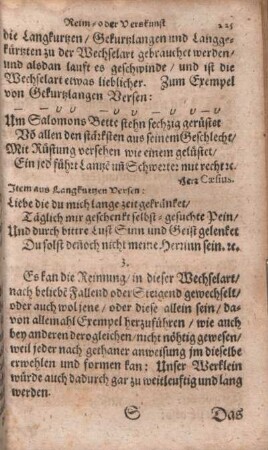 Reim-/oder Verskunst 225
die Langkurtzen/ Gekurtzlangen und Langge-
kürtzten zu der Wechselart gebrauchet werden/
und alsdan lauft es geschwinde/ und ist die
Wechselart etwas lieblicher. Zum Exempel
von Gekurtzlangen Versen:
Um Salomons Bette stehn sechzig gerüstet
Võ allen den stärksten aus seinem Geschlecht/
Mit Rüstung versehen wie einem gelüstet/
Ein jed führt Lantzẽ uñ Schwerte: mut recht ꝛc.
Herr Cæsius.
Item aus Langkurtzen Versen:
Liebe die du mich lange zeit gekränket/
Täglich mir geschenkt selbst-gesuchte Pein/
Und durch bittre Lust Sinn und Geist gelenket
Du solst deñoch nicht meine Herrinn sein. ꝛc.
3.
Es kan die Reimung/ in dieser Wechselart/
nach beliebẽ Fallend oder Steigend gewechselt/
oder auch wol jene/ oder diese allein sein/ da-
von allemahl Exempel herzuführen/ wie auch
bey anderen derogleichen/ nicht nöhtig gewesen/
weil jeder nach gethaner anweisung jm dieselbe
erwehlen und formen kan: Unser Werklein
würde auch dadurch gar zu weitleuftig und lang
werden.
S Das